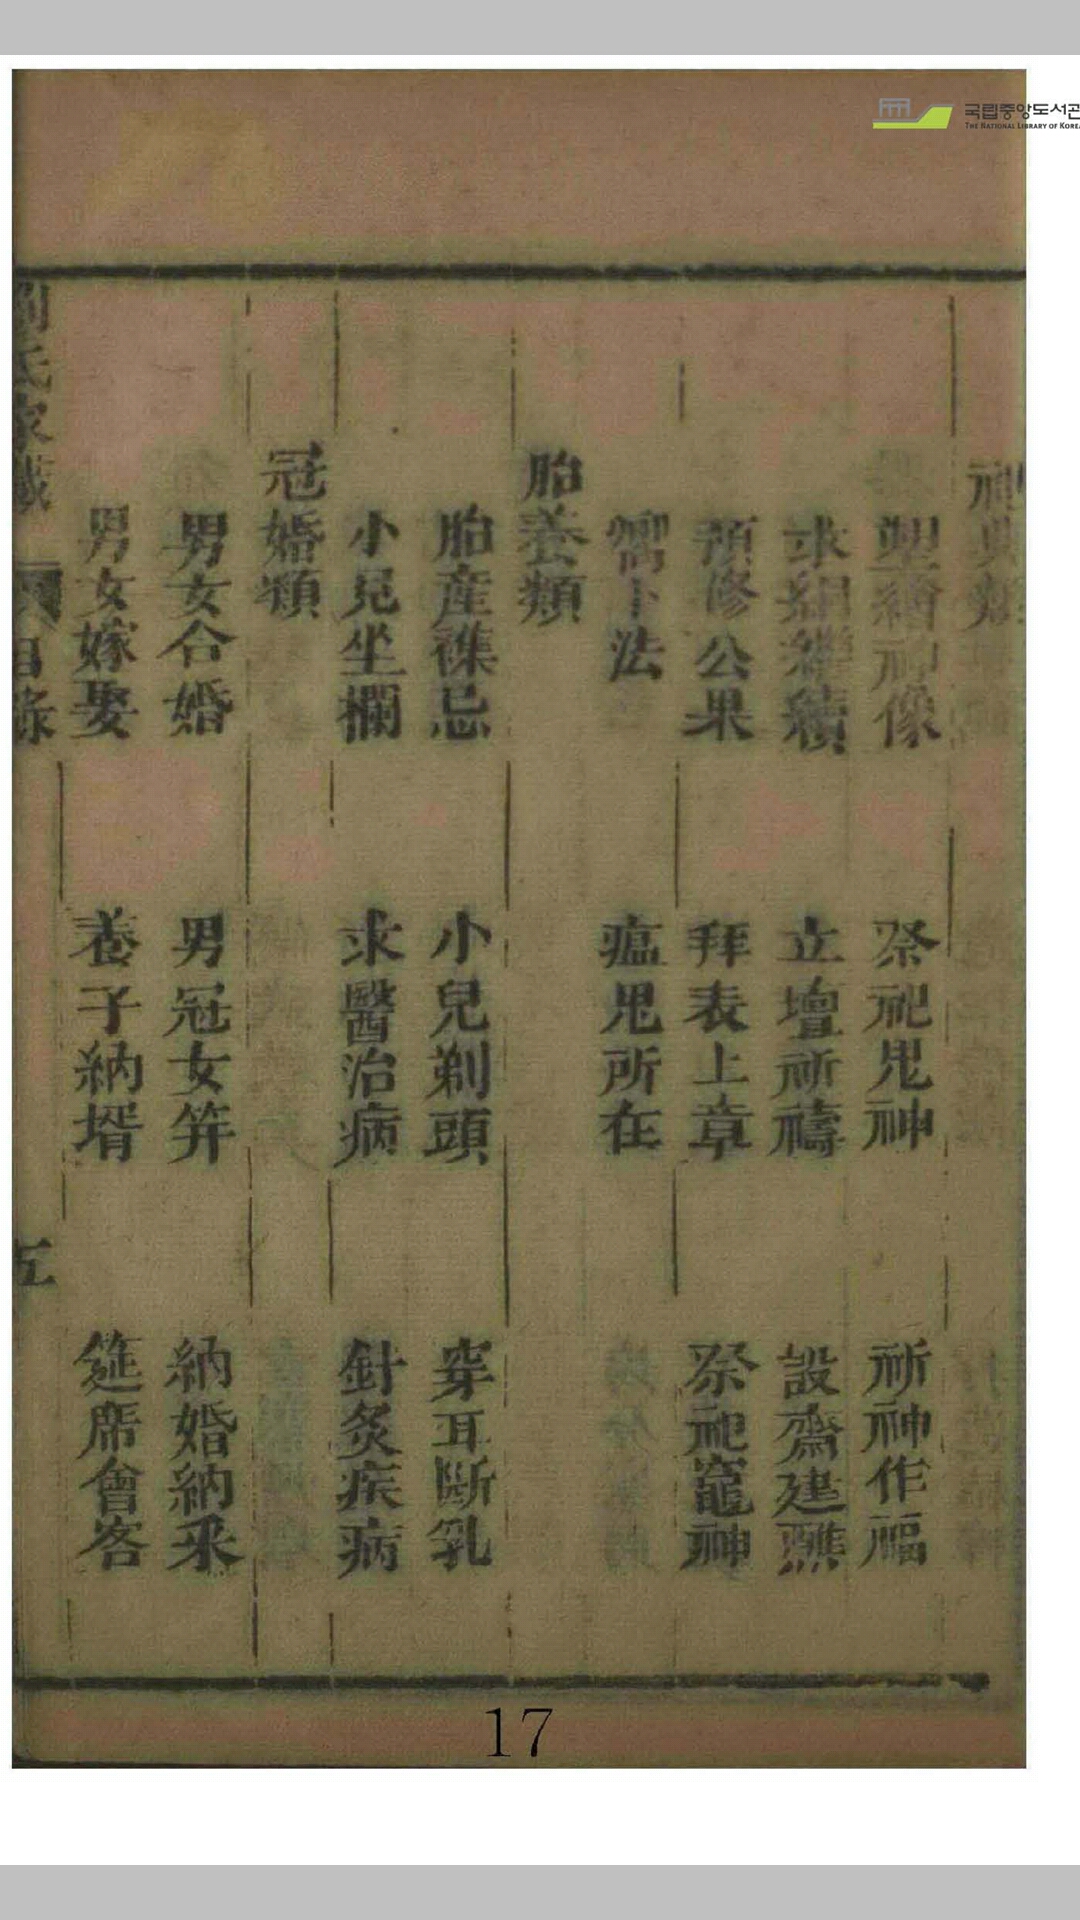 국립중앙도서관
THE NATIONAL LIBRARY OF KOREA
神典類
塑繪神像 祭祀鬼神 祈神作福
求嗣繼續 立壇祈禱 設齋建醮
預修公果 拜表上章 祭祀竈神
卜法 瘟鬼所在
胎養類
胎產襍忌 小兒剃頭 穿耳斷乳
小兒坐欄 求醫治病 針灸疾病
冠婚類
男女合婚 男冠女笄 納婚納采
男女嫁娶 養子納壻 筵席會客
劉氏家藏 目錄 五
17